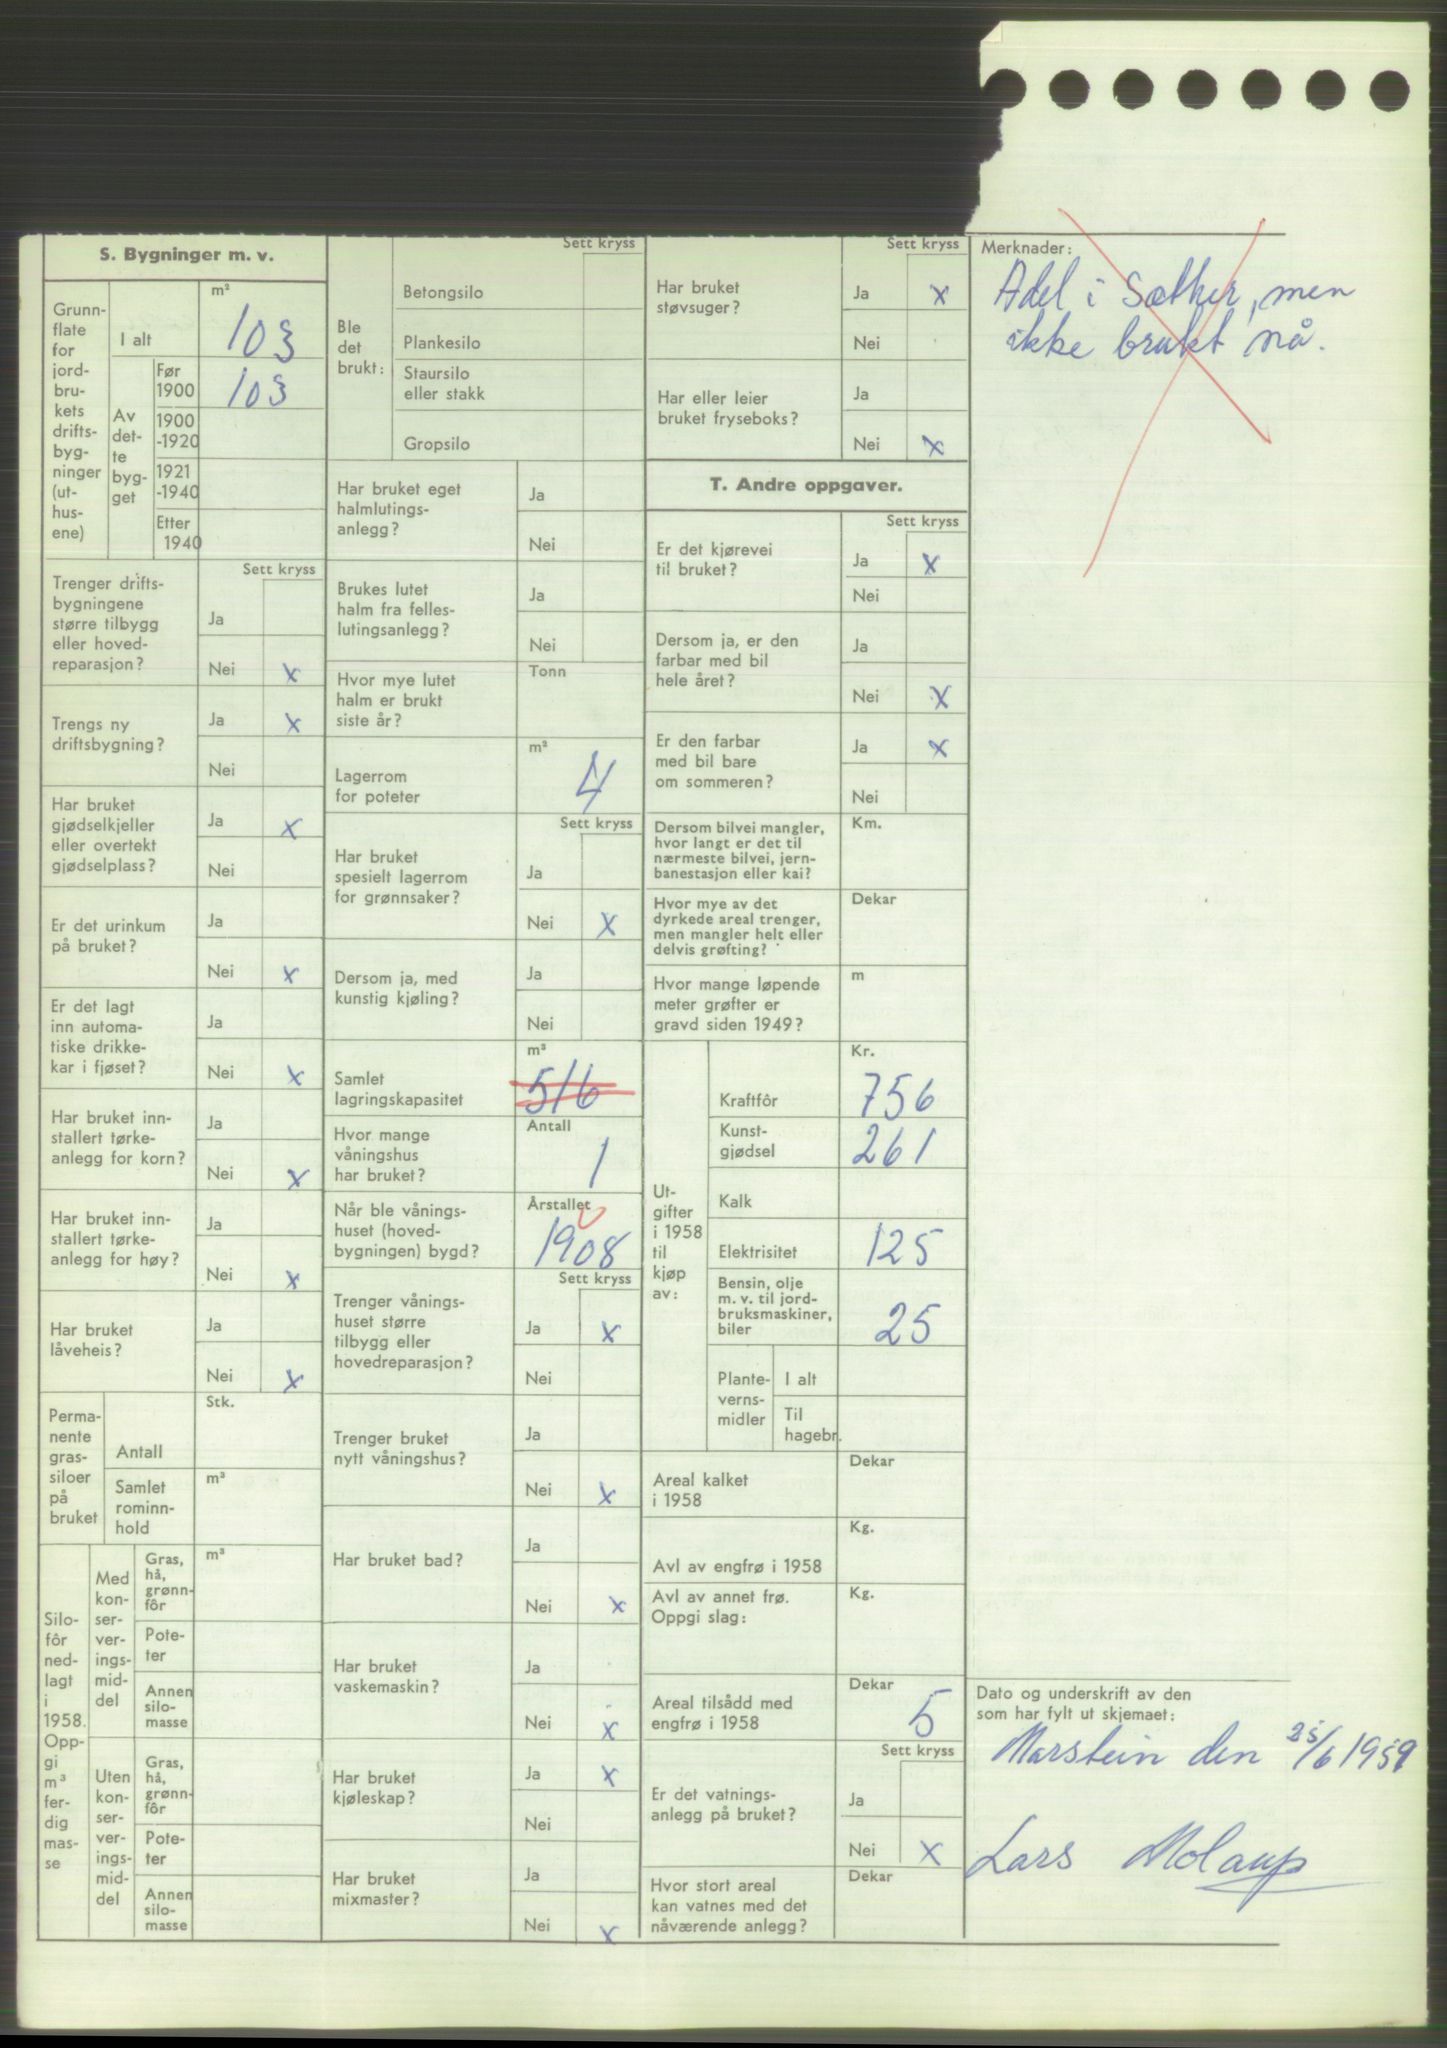 S. Bygninger m. v.
Grunn-
flate
for
jord-
bru-
kets
drifts-
byg-
ninger
(ut-
hus-
ene)
m²
I alt 103
Av
det-
te
byg-
get
Før
1900 103
1900
-1920
1921
-1940
Etter
1940
Sett kryss
Trenger drifts-
bygningene
større tilbygg
eller hoved-
reparasjon?
Ja
Nei x
Trengs ny
driftsbygning?
Ja x
Nei
Har bruket
gjødselkjeller
eller overtekt
gjødselplass?
Ja x
Nei
Er det urinkum
på bruket?
Ja
Nei x
Er det lagt
inn automa-
tiske drikke-
kar i fjøset?
Ja
Nei x
Har bruket inn-
stallert tørke-
anlegg for korn?
Ja
Nei x
Har bruket inn-
stallert tørke-
anlegg for høy?
Ja
Nei x
Har bruket
låveheis?
Ja
Nei x
Perma-
nente
gras-
siloer
på
bruket
Stk.
Antall
m³
Samlet
rominn-
hold
Silo-
fôr
ned-
lagt
i
1958.
Opp-
gi
m³
fer-
dig
mas-
se
m³
Med
kon-
ser-
ver-
ings-
mid-
del
Gras,
hå,
grønn-
fôr
Pote-
ter
Annen
silo-
masse
Uten
kon-
ser-
ver-
ings-
mid-
del
Gras,
hå,
grønn-
fôr
Pote-
ter
Annen
silo-
masse
Sett kryss
Ble
det
brukt:
Betongsilo
Plankesilo
Staursilo
eller stakk
Gropsilo
Har bruket eget
halmlutings-
anlegg?
Ja
Nei
Brukes lutet
halm fra felles-
lutingsanlegg?
Ja
Nei
Hvor mye lutet
halm er brukt
siste år?
Tonn
Lagerrom
for poteter
m³
4
Sett kryss
Har bruket
spesielt lagerrom
for grønnsaker?
Ja
Nei x
Dersom ja, med
kunstig kjøling?
Ja
Nei
Samlet
lagringskapasitet
m³
516
Hvor mange
våningshus
har bruket?
Antall
1
Når ble vånings-
huset (hoved-
bygningen) bygd?
Årstallet
1908
Sett kryss
Trenger vånings-
huset større
tilbygg eller
hovedreparasjon?
Ja x
Nei
Trenger bruket
nytt våningshus?
Ja
Nei x
Har bruket bad?
Ja
Nei x
Har bruket
vaskemaskin?
Ja
Nei x
Har bruket
kjøleskap?
Ja x
Nei
Har bruket
mixmaster?
Ja
Nei x
Sett kryss
Har bruket
støvsuger?
Ja x
Nei
Har eller leier
bruket fryseboks?
Ja
Nei x
T. Andre oppgaver.
Sett kryss
Er det kjørevei
til bruket?
Ja x
Nei
Dersom ja, er den
farbar med bil
hele året?
Ja
Nei x
Er den farbar
med bil bare
om sommeren?
Ja x
Nei
Dersom bilvei mangler,
hvor langt er det til
nærmeste bilvei, jern-
banestasjon eller kai?
Km.
Hvor mye av det
dyrkede areal trenger,
men mangler helt eller
delvis grøfting?
Dekar
Hvor mange løpende
meter grøfter er
gravd siden 1949?
m
Ut-
gifter
i 1958
til
kjøp
av:
Kr.
Kraftfôr 756
Kunst-
gjødsel 261
Kalk
Elektrisitet 125
Bensin, olje
m. v. til jord-
bruksmaskiner,
biler 25
Plante-
verns-
midler
I alt
Til
hagebr.
Areal kalket
i 1958
Dekar
Avl av engfrø i 1958
Kg.
Avl av annet frø.
Oppgi slag:
Kg.
Areal tilsådd med
engfrø i 1958
Dekar
5
Sett kryss
Er det vatnings-
anlegg på bruket?
Ja
Nei x
Hvor stort areal
kan vatnes med det
nåværende anlegg?
Dekar
Merknader:
Adel i Sæther, men
ikke brukt nå.
Dato og underskrift av den
som har fylt ut skjemaet:
Marstein den 25/6 1959
Lars